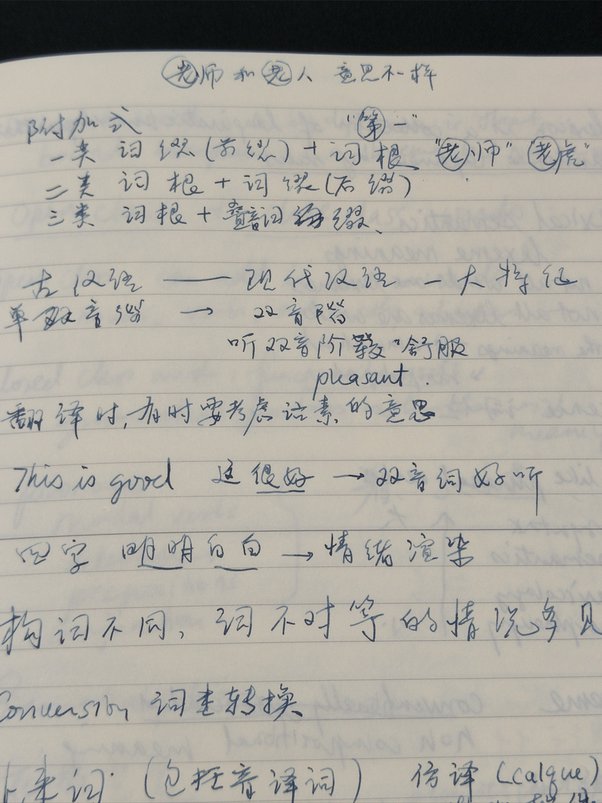 老师和老人 意思不一样
附加式 "第一"
一类 词缀(前缀)+词根 "老师" "老虎"
二类 词根+词缀(后缀)
三类 词根+叠音词缀
古汉语 —— 现代汉语 一大特征
单音 → 双音阶
听双音阶 舒服
pleasant.
翻译时,有时要考虑语素的意思
This is good 这很好 → 双音词好听
四字 明明白白 → 情绪渲染
构词不同,词不对等的情况多见
Conversion 词类转换
外来词 (包括音译词) 仿译 (calque)